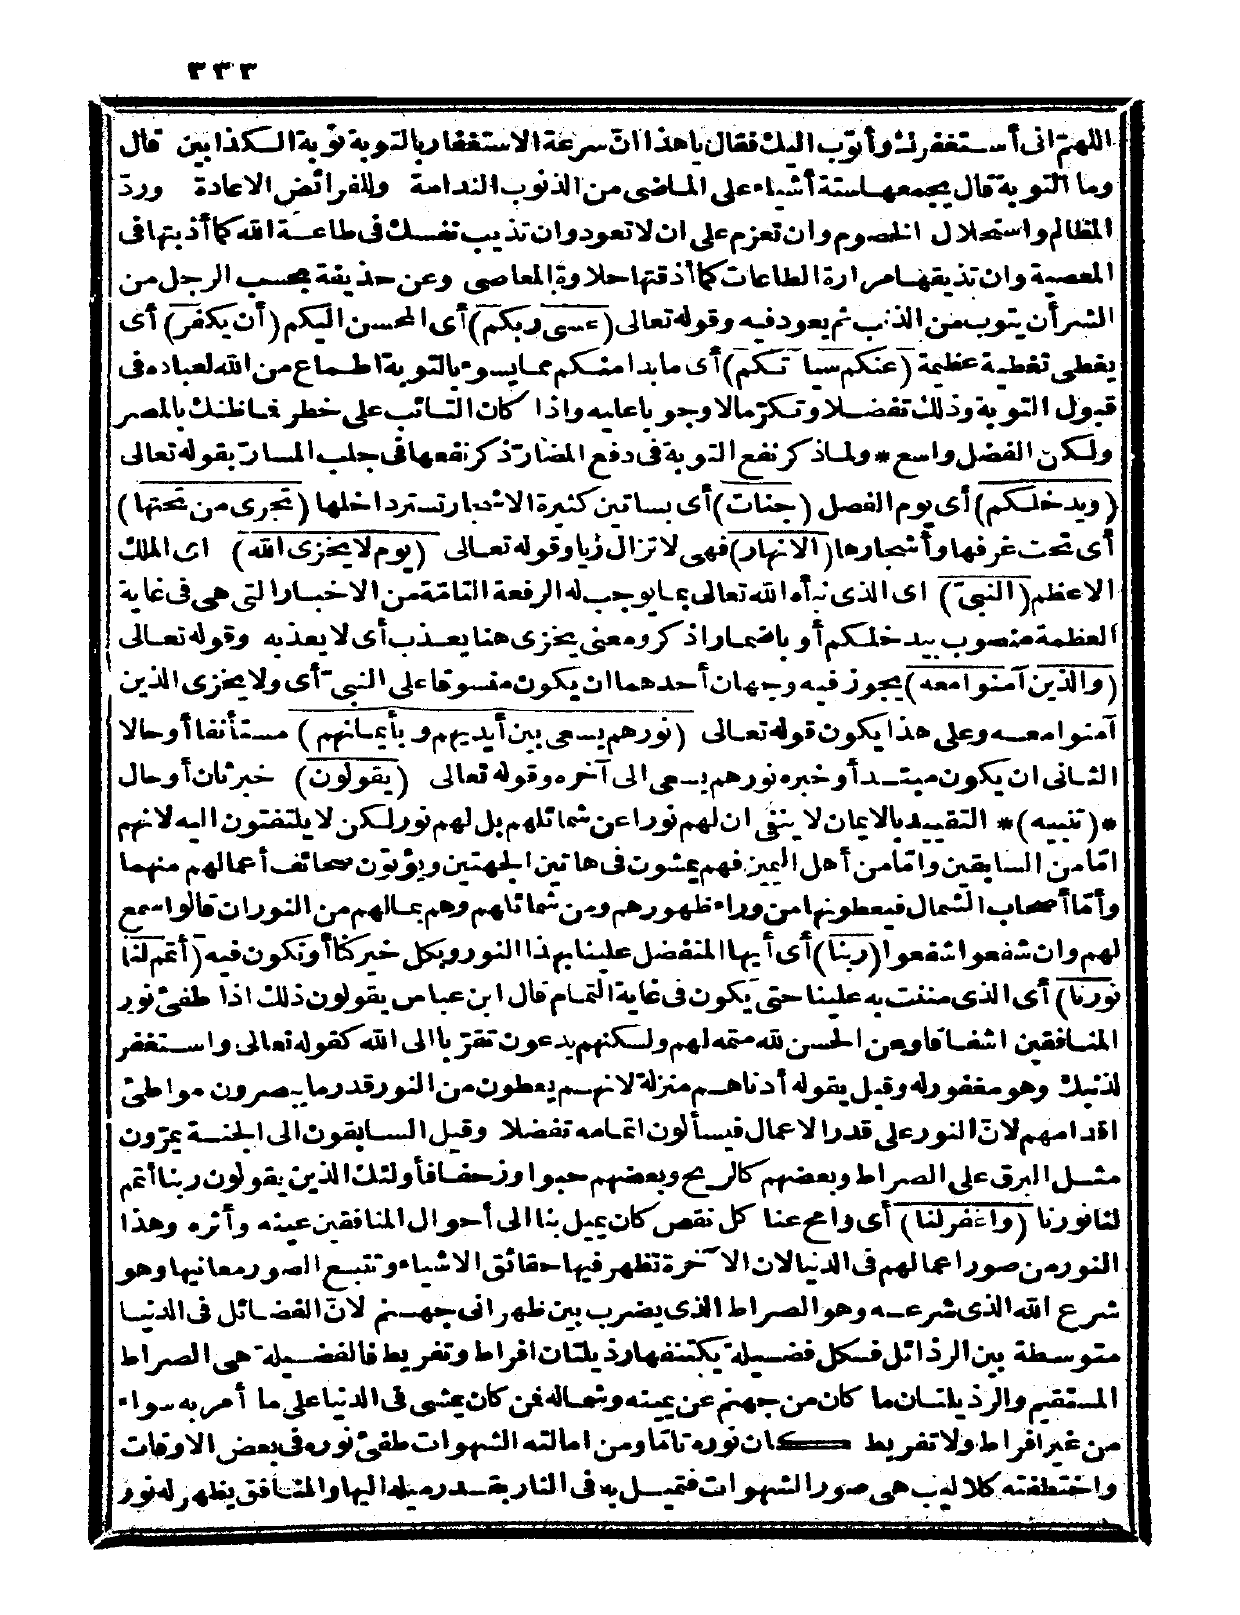 ٣٣٣
اللهمّ انى أستغفرك وأتوب اليك فقال ياهذا انّ سرعة الاستغفار بالتوبة توبة الكذابين قال
وما التوبة قال يجمعها ستة أشياء على الماضى من الذنوب الندامة وللفرائض الاعادة وردّ
المظالم واستحلال الخصوم وان تعزم على ان لا تعود وان تذيب نفسك فى طاعة الله كما أذبتها فى
المعصية وان تذيقها مرارة الطاعات كما أذقتها حلاوة المعاصى وعن حذيفة بحسب الرجل من
الشر أن يتوب من الذنب ثم يعود فيه وقوله تعالى (عسى ربكم) أى المحسن اليكم (أن يكفر) أى
يغطى تغطية عظيمة (عنكم سيا تكم) أى ما بدا منكم مما يسوء بالتوبة اطماع من الله لعباده فى
قبول التوبة وذلك تفضلا وتكرّما لا وجوبا عليه واذا كان التائب على خطر فما ظنك بالمصر
ولكن الفضل واسع * ولما ذكر نفع التوبة فى دفع المضارّ ذكر نفعها فى جلب المسارّ بقوله تعالى
(ويدخلكم) أى يوم الفصل (جنات) أى بساتين كثيرة الاشجار تستر داخلها (تجرى من تحتها)
أى تحت غرفها وأشجارها (الانهار) فهى لا تزال ريا وقوله تعالى (يوم لا يخزى الله) اى الملك
الاعظم (النبىّ) اى الذى نبأه الله تعالى بما يوجب له الرفعة التامّة من الاخبار التى هى فى غاية
العظمة منصوب بيدخلكم أو باضمار اذكر ومعنى يخزى هنا يعذب أى لا يعذبه وقوله تعالى
(والذين آمنوا معه) يجوز فيه وجهان أحدهما ان يكون منسوقا على النبىّ أى ولا يخزى الذين
آمنوا معه وعلى هذا يكون قوله تعالى (نورهم يسعى بين أيديهم وبأيمانهم) مستأنفا أو حالا
الثانى ان يكون مبتدأ وخبره نورهم يسعى الى آخره وقوله تعالى (يقولون) خبر ثان أو حال
*(تنبيه)* التقييد بالايمان لا ينفى ان لهم نورا عن شمائلهم بل لهم نور لكن لا يلتفتون اليه لانهم
امّا من السابقين وامّا من أهل اليمين فهم يمشون فى هاتين الجهتين ويؤتون صحائف أعمالهم منهما
وأمّا أصحاب الشمال فيعطونها من وراء ظهورهم ومن شمائلهم وهم بمالهم من النور ان قالوا سمع
لهم وان شفعوا شفعوا (ربنا) أى أيها المتفضل علينا بهذا النور وبكل خير كنا أو نكون فيه (أتمم لنا
نورنا) أى الذى مننت به علينا حتى يكون فى غاية التمام قال ابن عباس يقولون ذلك اذا طفئ نور
المنافقين اشفاقا وعن الحسن لله متمه لهم ولكنهم يدعون تقرّبا الى الله كقوله تعالى واستغفر
لذنبك وهو مغفور له وقيل يقوله أدناهم منزلة لانهم يعطون من النور قدر ما يبصرون مواطئ
اقدامهم لانّ النور على قدر الاعمال فيسألون اتمامه تفضلا وقيل السابقون الى الجنة يمرّون
مثل البرق على الصراط وبعضهم كالريح وبعضهم حبوا وزحفا فأولئك الذين يقولون ربنا أتمم
لنا نورنا (واغفر لنا) أى وامح عنا كل نقص كان يميل بنا الى أحوال المنافقين عينه وأثره وهذا
النور من صور اعمالهم فى الدنيا لان الآخرة تظهر فيها حقائق الاشياء وتتبع الصور معانيها وهو
شرع الله الذى شرعه وهو الصراط الذى يضرب بين ظهرانى جهنم لانّ الفضائل فى الدنيا
متوسطة بين الرذائل فكل فضيلة يكتنفها رذيلتان افراط وتفريط فالفضيلة هى الصراط
المستقيم والرذيلتان ما كان من جهنم عن يمينه وشماله فمن كان يمشى فى الدنيا على ما أمر به سواء
من غير افراط ولا تفريط كان نوره تامّا ومن امالته الشهوات طفئ نوره فى بعض الاوقات
واختطفته كلاليب هى صور الشهوات فتميل به فى النار بقدر ميله اليها والمنافق يظهر له نور